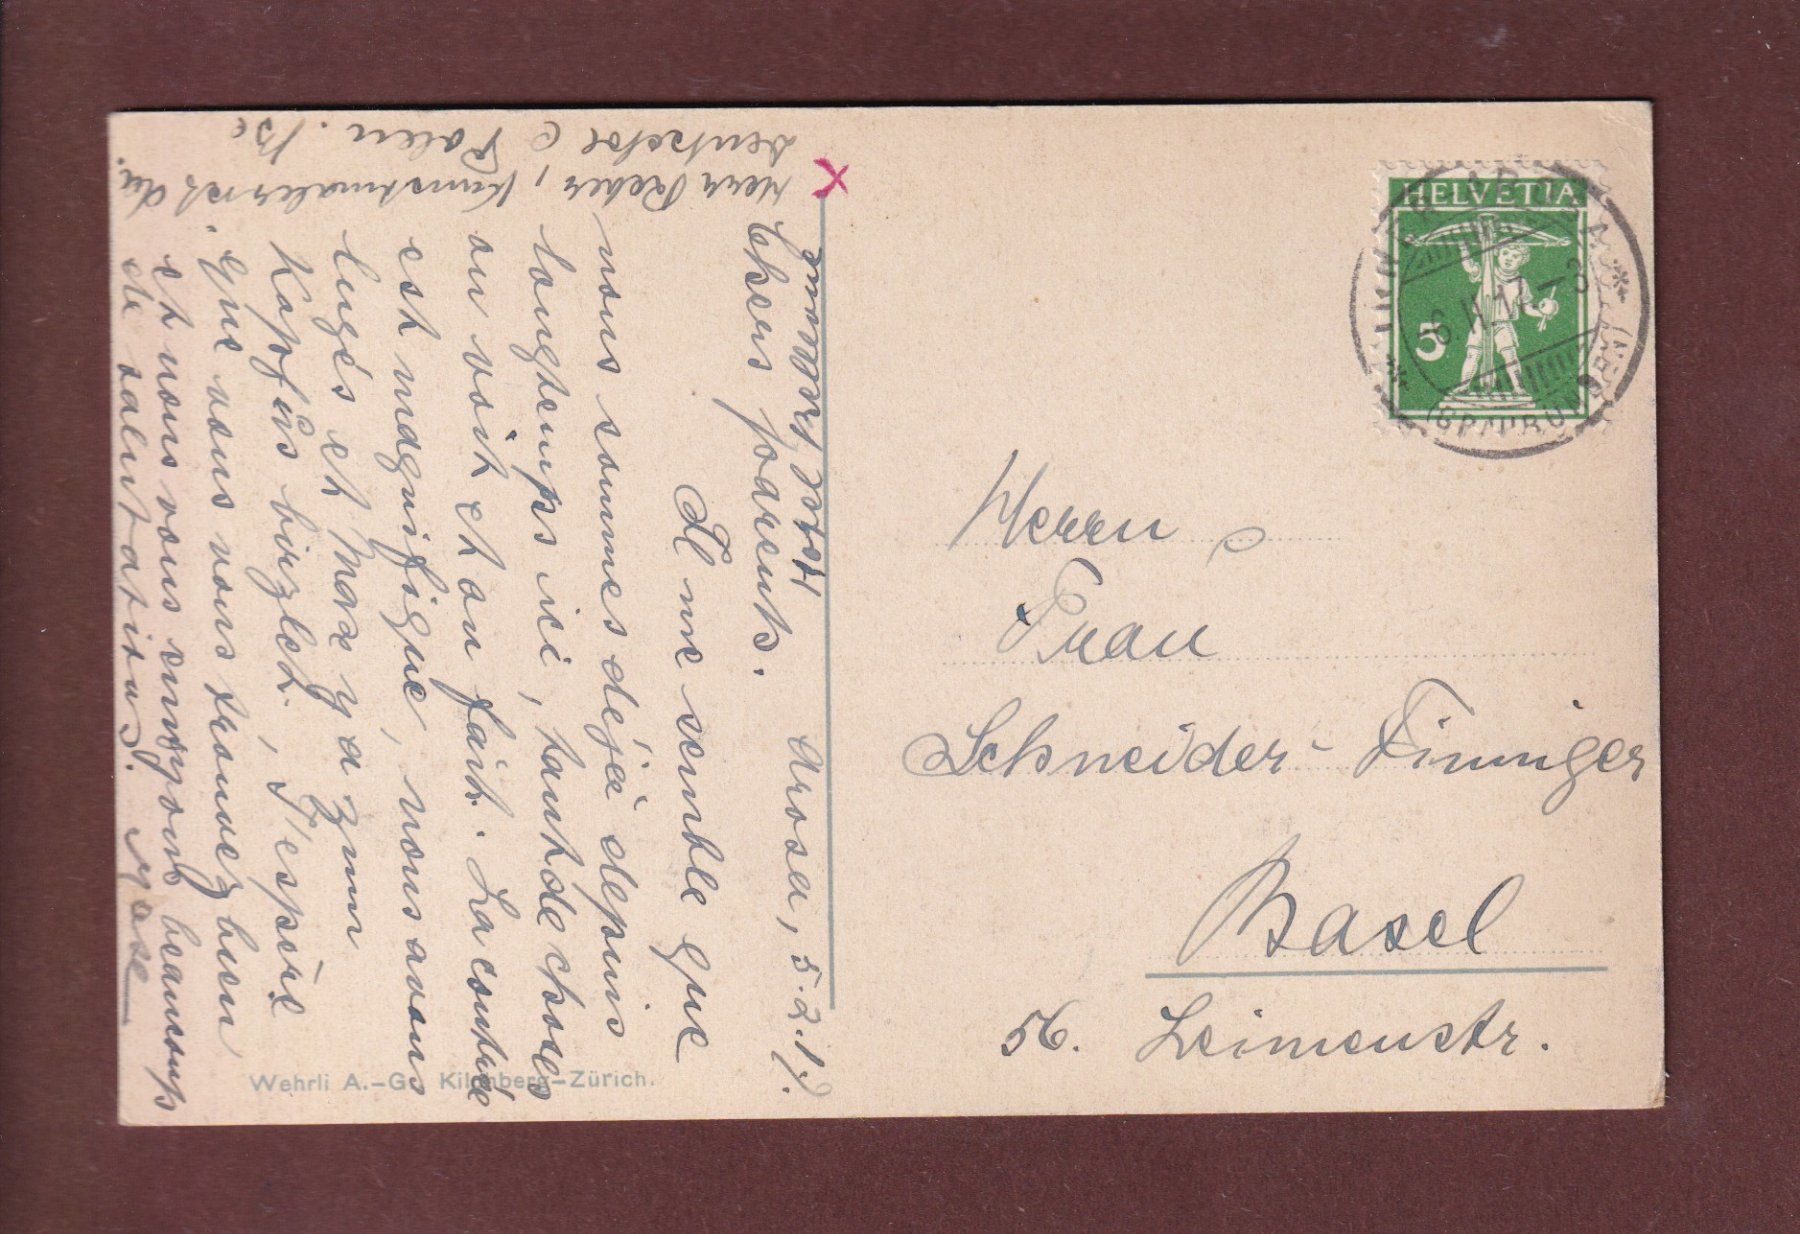 Hotel Arosa, 5.2.17.
Chers parents.
Il me semble que
nous sommes déjà depuis
longtemps ici, tant de choses
on voit et on fait. La contrée
est magnifique, nous avons
lugés et Max y a zum
Kopf's bürzlet. J'espère
que vous vous trouvez bien
et nous vous envoyons beaucoup
de salutations.
Herr Reber, Kunstmaler
HELVETIA
5
Herrn
Frau
Schneider-Dinniger
Basel
56. Leimenstr.
Wehrli A.-G. Kilchberg-Zürich.